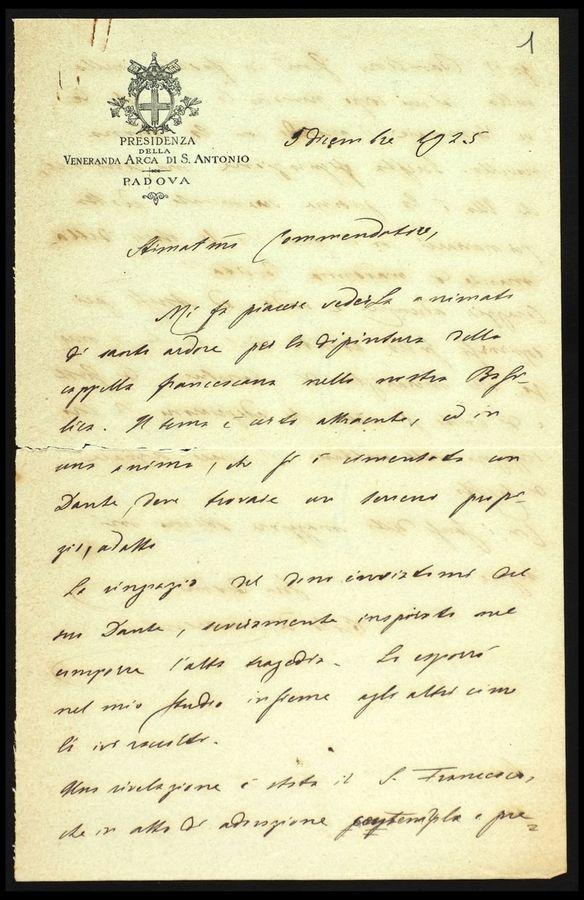 1
PRESIDENZA
DELLA
VENERANDA ARCA DI S. ANTONIO
PADOVA
5 dicembre 1925
Stimatmo Commendatore,
Mi fa piacere vederla animato
di santo ardore per la dipintura della
cappella francescana nella nostra Basi-
lica. Il tema è certo attraente, ed in
una anima, che si è cimentata con
Dante, deve trovare un terreno propi-
zio, adatto
La ringrazio del dono inviatomi del
suo Dante, severamente inspirato nel
comporre l'alta tragedia. Lo esporrò
nel mio studio insieme agli altri cime
li ivi raccolti.
Una rivelazione è stata il S. Francesco,
che in atto di adorazione contempla e pre=